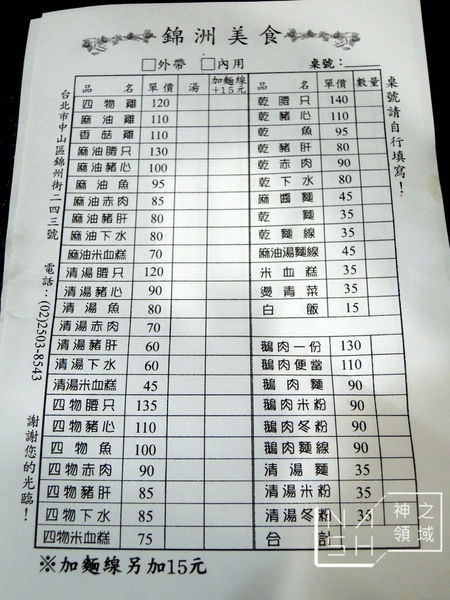 錦洲美食
□外帶 □內用 桌號：
品名 單價 湯 加麵線+15元
四物雞 120
麻油雞 110
香菇雞 110
麻油腰只 130
麻油豬心 100
麻油魚 95
麻油赤肉 85
麻油豬肝 80
麻油下水 80
麻油米血糕 70
清湯腰只 120
清湯豬心 90
清湯魚 80
清湯赤肉 70
清湯豬肝 60
清湯下水 60
清湯米血糕 45
四物腰只 135
四物豬心 110
四物魚 100
四物赤肉 90
四物豬肝 85
四物下水 85
四物米血糕 75
品名 單價 數量
乾腰只 140
乾豬心 110
乾魚 95
乾豬肝 80
乾赤肉 90
乾下水 80
麻醬麵 45
乾麵 35
乾麵線 35
麻油湯麵線 45
米血糕 35
燙青菜 35
白飯 15
鵝肉一份 130
鵝肉便當 110
鵝肉麵 90
鵝肉米粉 90
鵝肉冬粉 90
鵝肉麵線 90
清湯麵 35
清湯米粉 35
清湯冬粉 35
合計
※加麵線另加15元
台北市中山區錦州街二四三號
電話：(02)2503-8543
謝謝您的光臨！
桌號請自行填寫！
神之領域